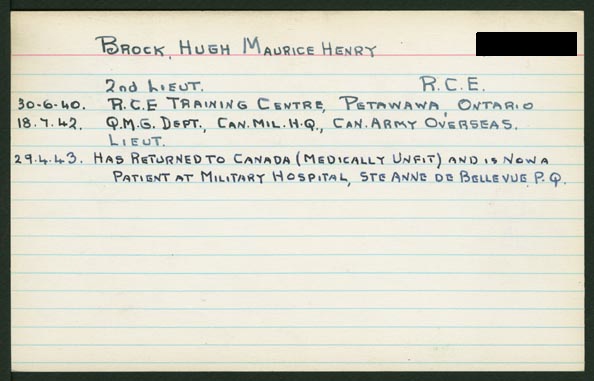 Brock, Hugh Maurice Henry
2nd Lieut. R.C.E.
30-6-40. R.C.E Training Centre, Petawawa, Ontario
18.7.42. Q.M.G. Dept., Can. Mil. H.Q., Can. Army Overseas.
Lieut.
29.4.43. Has Returned to Canada (Medically Unfit) and is now a
Patient at Military Hospital, Ste Anne de Bellevue, P.Q.